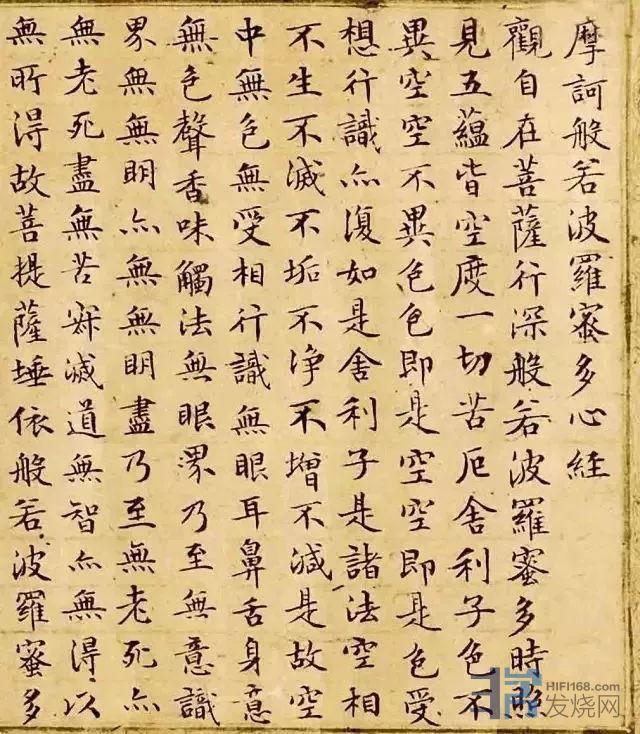 摩訶般若波羅蜜多心經
觀自在菩薩行深般若波羅蜜多時照
見五蘊皆空度一切苦厄舍利子色不
異空空不異色色即是空空即是色受
想行識亦復如是舍利子是諸法空相
不生不滅不垢不淨不增不減是故空
中無色無受相行識無眼耳鼻舌身意
無色聲香味觸法無眼界乃至無意識
界無無明亦無無明盡乃至無老死亦
無老死盡無苦寂滅道無智亦無得以
無所得故菩提薩埵依般若波羅蜜多
HIFI168.com
发烧网